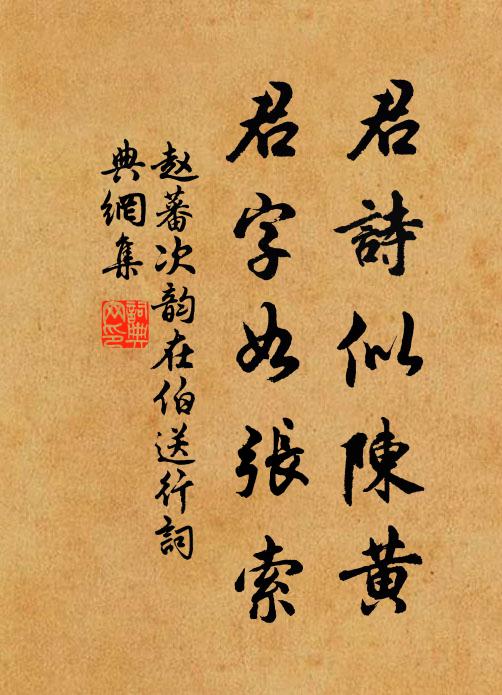 君詩似陳黄
君字如張索
赵蕃次韵在伯送行詞
典網集
詞典
网印